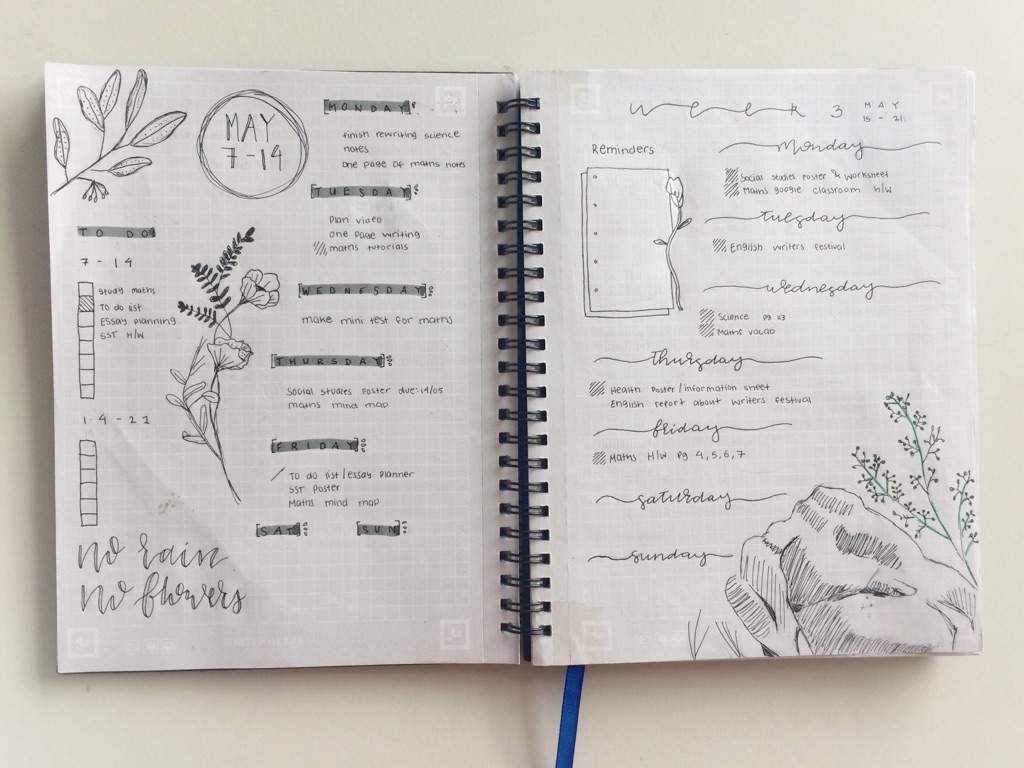 MAY
7-14
TO DO
7 - 14
study maths
To do list
Essay planning
SST H/W
14-21
no rain
no flowers
MONDAY
finish rewriting science
notes
one page of maths notes
TUESDAY
Plan video
one page writing
maths tutorials
WEDNESDAY
make mini test for maths
THURSDAY
Social studies poster due:14/05
maths mind map
FRIDAY
To do list/essay planner
SST poster
Maths mind map
SAT
SUN
WEEK 3
MAY
15 - 21
Reminders
Monday
Social studies poster & worksheet
Maths google classroom H/W
tuesday
English writers festival
wednesday
Science pg
Maths vocab
thursday
Health poster/information sheet
English report about writers festival
friday
Maths H/W pg 4,5,6,7
saturday
sunday